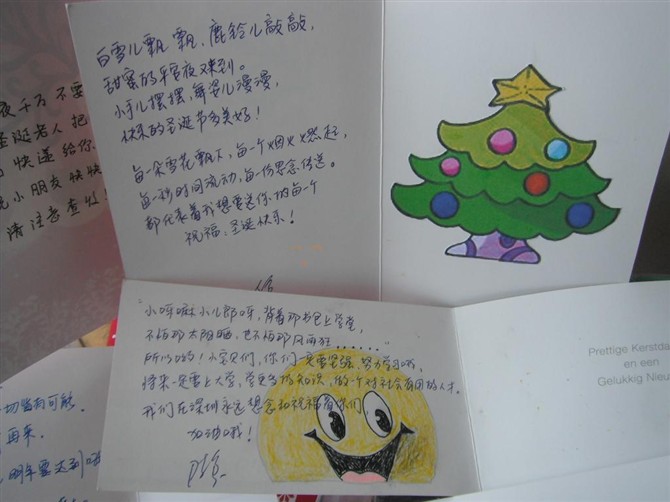 白雪儿飘飘、鹿铃儿敲敲,
甜蜜的平安夜又来到。
小手儿摆摆,舞姿儿漫漫,
快乐的圣诞节多美好!
每一朵雪花飘下,每一个烟火燃起,
每一秒时间流动,每一份思念传送。
都代表着我想要送你的每一个
祝福:圣诞快乐!
夜千万不要
圣诞老人把
快递给你
小朋友快快
请注意查收
"小呀嘛小儿郎呀,背着那书包上学堂,
不怕那太阳晒,也不怕那风雨狂......"
所以哟!小宝贝们,你们一定要坚强、努力学习哦,
将来一定要上大学,学更多的知识,做一个对社会有用的人才。
我们在深圳永远想念和祝福着你们
加油哦!
Prettige Kerstda
en een
Gelukkig Nieu
一切皆有可能.
再来.
明年要达到